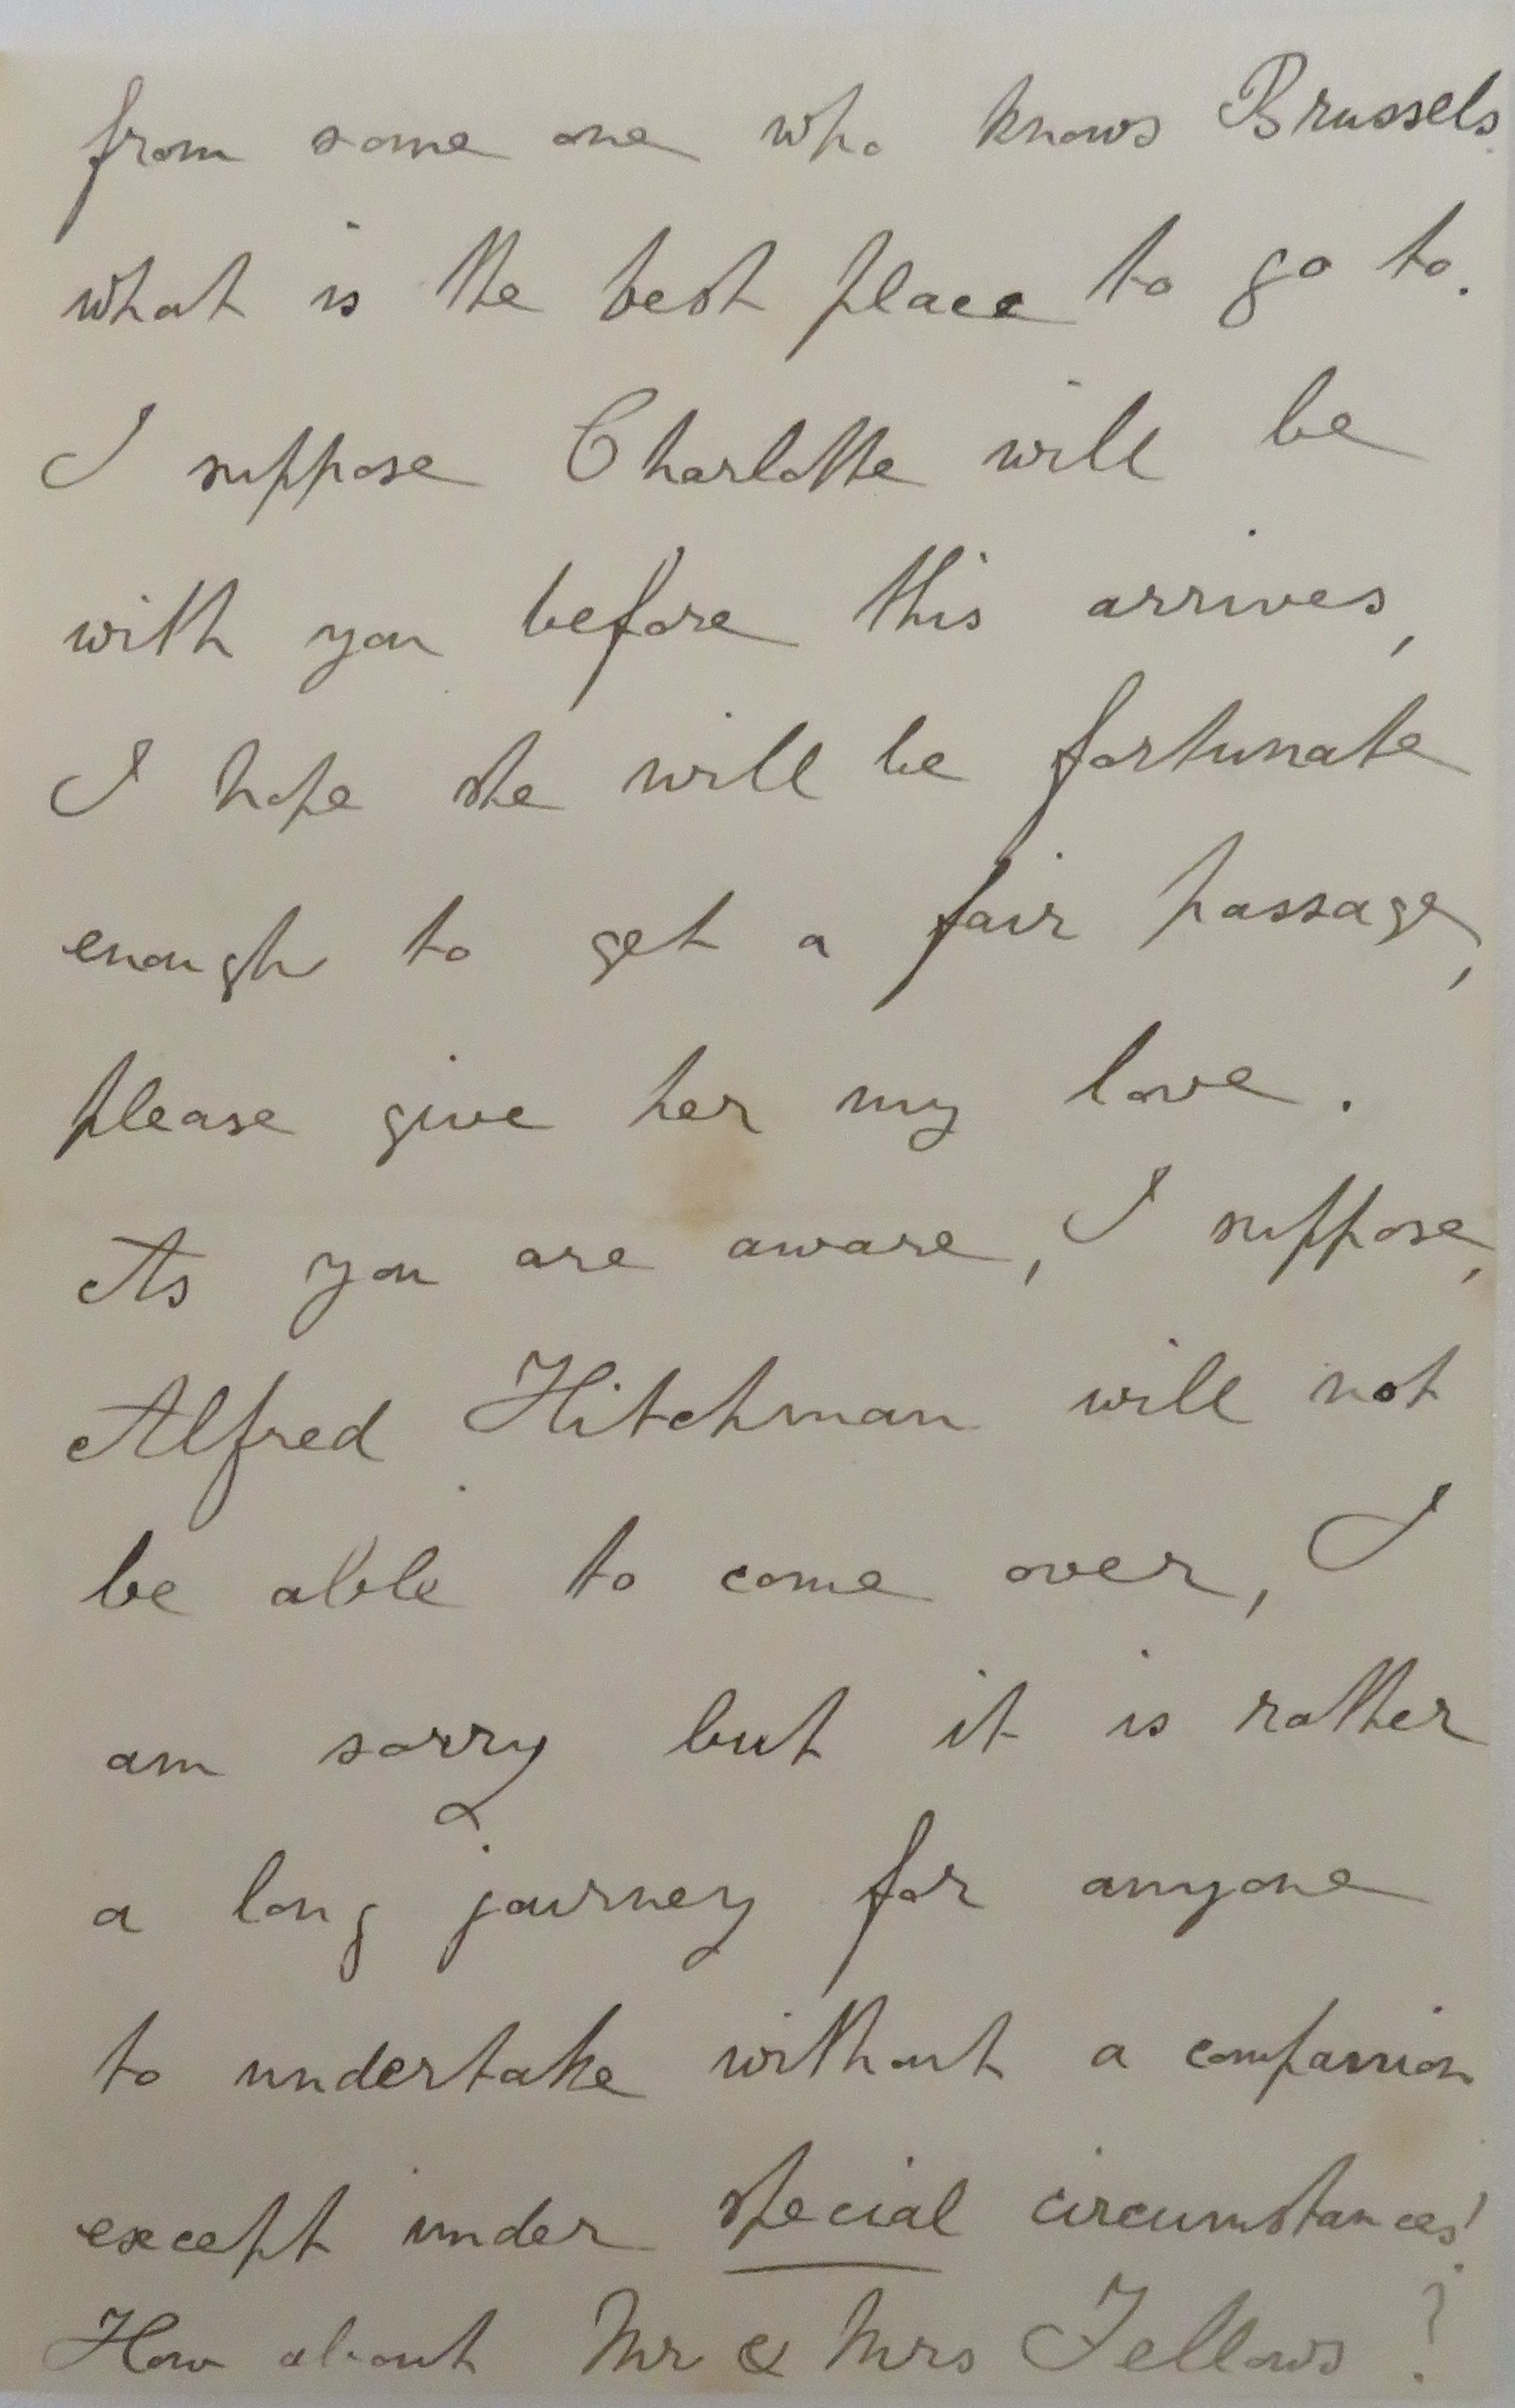 from some one who knows Brussels.
what is the best place to go to.
I suppose Charlotte will be
with you before this arrives,
I hope she will be fortunate
enough to get a fair passage,
please give her my love.
As you are aware, I suppose,
Alfred Hitchman will not
be able to come over, I
am sorry but it is rather
a long journey for anyone
to undertake without a companion
except under special circumstances!
How about Mr & Mrs Fellows?